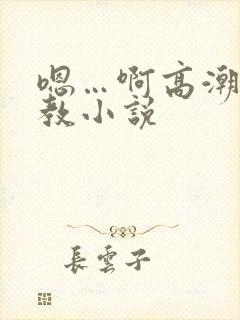 嗯…啊高潮
教小说
長雲子